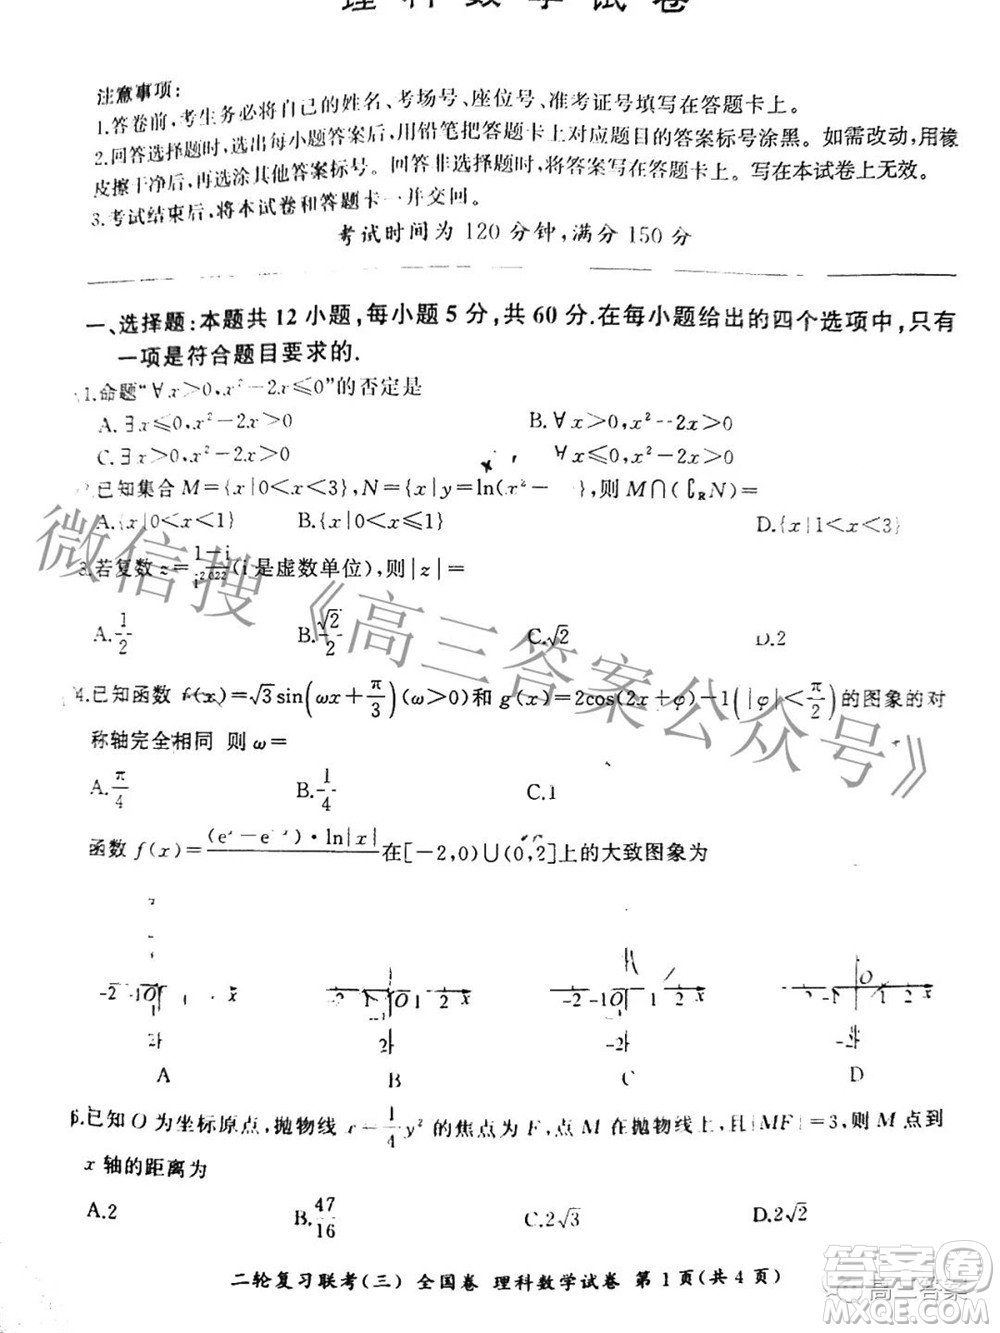 理科数学试卷
注意事项:
1.答卷前,考生务必将自己的姓名、考场号、座位号、准考证号填写在答题卡上。
2.回答选择题时,选出每小题答案后,用铅笔把答题卡上对应题目的答案标号涂黑。如需改动,用橡
皮擦干净后,再选涂其他答案标号。回答非选择题时,将答案写在答题卡上。写在本试卷上无效。
3.考试结束后,将本试卷和答题卡一并交回。
考试时间为120分钟,满分150分
一、选择题:本题共12小题,每小题5分,共60分.在每小题给出的四个选项中,只有
一项是符合题目要求的.
1.命题“∀x>0,x²-2x≤0”的否定是
A.∃x≤0,x²-2x>0 B.∀x>0,x²-2x>0
C.∃x>0,x²-2x>0 ∀x≤0,x²-2x>0
2.已知集合M={x|0<x<3},N={x|y=ln(x²- },则M∩(∁RN)=
A.{x|0<x<1} B.{x|0<x≤1} D.{x|1<x<3}
3.若复数z=(1-i)/i²⁰²²(i是虚数单位),则|z|=
A.1/2 B.√2/2 C.√2 D.2
4.已知函数f(x)=√3sin(ωx+π/3)(ω>0)和g(x)=2cos(2x+φ)-1(|φ|<π/2)的图象的对
称轴完全相同 则ω=
A.π/4 B.1/4 C.1
函数f(x)=(e -e )·ln|x| 在[-2,0)∪(0,2]上的大致图象为
-2 -1 O 1 x -2 -1 O 1 2 x -2 -1 O 1 2 x -2 -1 O 1 2 x
A B C D
6.已知O为坐标原点,抛物线x=1/4y²的焦点为F,点M在抛物线上,且|MF|=3,则M点到
x轴的距离为
A.2 B.47/16 C.2√3 D.2√2
二轮复习联考(三) 全国卷 理科数学试卷 第1页(共4页)
微信搜《高三答案公众号》
高三答案
答案圈
MXQE.COM